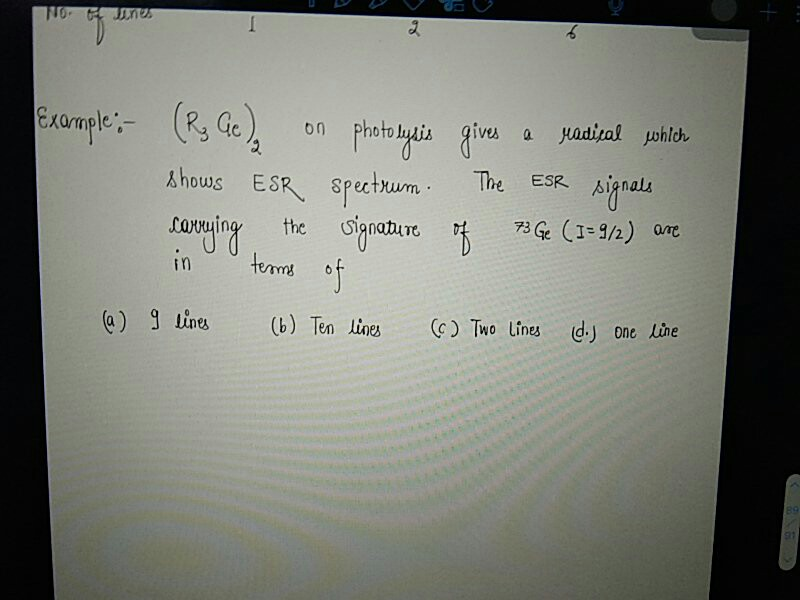 No. of lines 1 2 6
Example:- (R3 Ge)2 on photolysis gives a radical which
shows ESR spectrum. The ESR signals
carrying the signature of 73Ge (I=9/2) are
in terms of
(a) 9 lines (b) Ten lines (c) Two lines (d.) one line
89
91